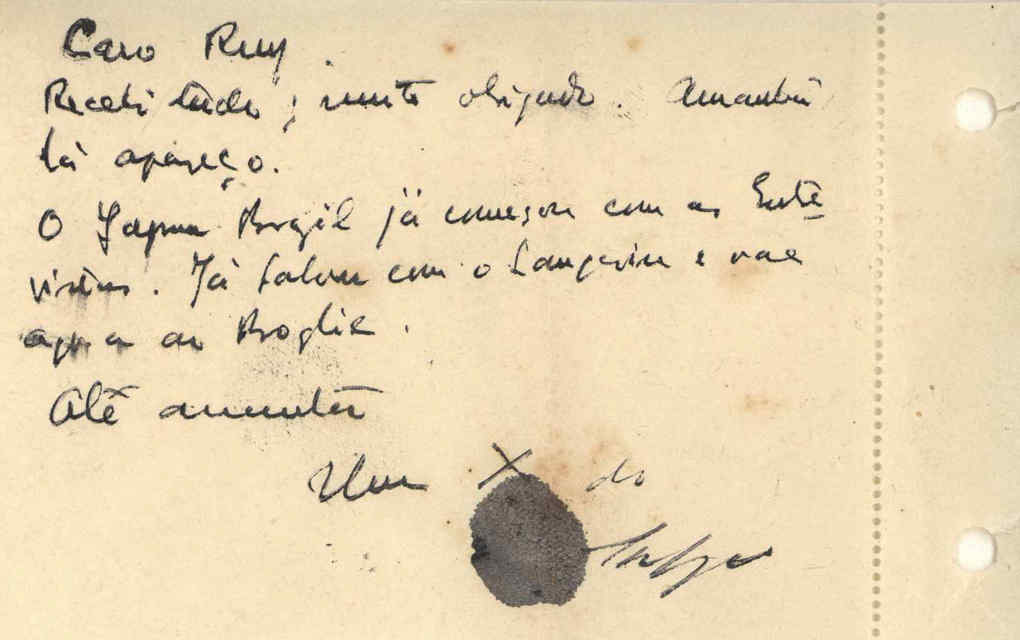 Caro Ruy.
Recebi tudo; muito obrigado. Amanhã
lá apareço.
O Brazil já começou com as Entre
vistas. Já falou com o Langevin e vae
agora ao Broglie.
Até amanhã
Um X do